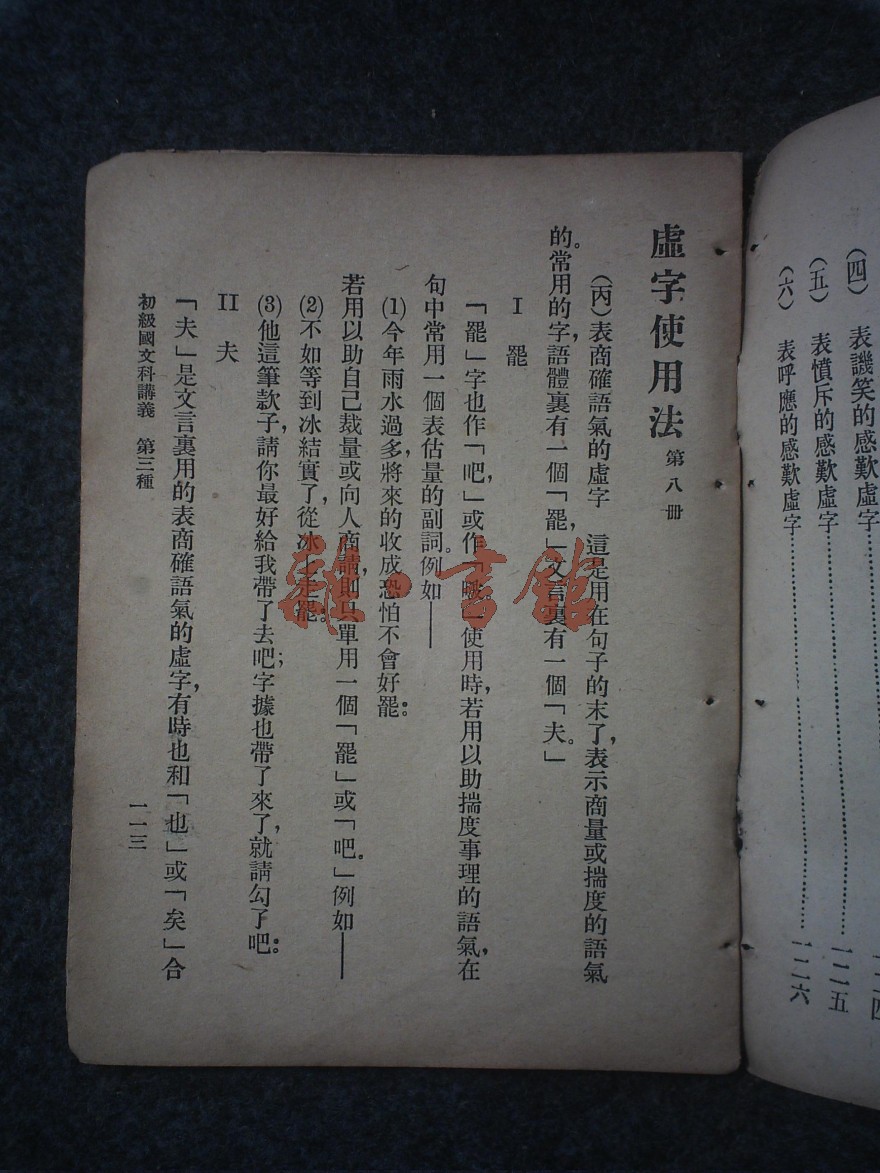 (四) 表譏笑的感歎虛字
(五) 表憤斥的感歎虛字……一二五
(六) 表呼應的感歎虛字……一二六
虛字使用法 第八册
(丙)表商確語氣的虛字 這是用在句子的末了,表示商量或揣度的語氣
的。常用的字,語體裏有一個「罷,」文言裏有一個「夫。」
I 罷
「罷」字也作「吧,」或作「啵。」使用時,若用以助揣度事理的語氣,在
句中常用一個表估量的副詞。例如——
(1)今年雨水過多,將來的收成恐怕不會好罷。
若用以助自己裁量或向人商請,則只單用一個「罷」或「吧。」例如——
(2)不如等到冰結實了,從冰上走罷。
(3)他這筆款子,請你最好給我帶了去吧;字據也帶了來了,就請勾了吧。
II 夫
「夫」是文言裏用的表商確語氣的虛字,有時也和「也」或「矣」合
初級國文科講義 第三種
一一三
雜·書館